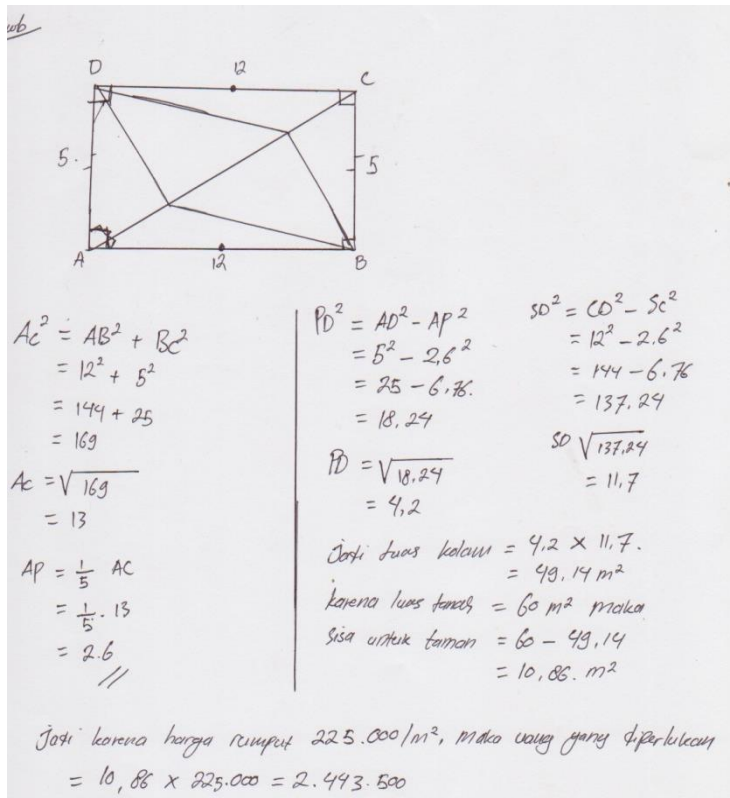 wb
D 12 C
5. 5
A 12 B
Ac² = AB² + Bc²
= 12² + 5²
= 144 + 25
= 169
Ac = √169
= 13
AP = 1/5 AC
= 1/5 . 13
= 2.6 //
PD² = AD² - AP²
= 5² - 2,6²
= 25 - 6,76.
= 18,24
PD = √18,24
= 4,2
SD² = CD² - Sc²
= 12² - 2.6²
= 144 - 6,76
= 137.24
SD √137,24
= 11,7
Jadi luas kolam = 4,2 × 11,7.
= 49,14 m²
karena luas tanah = 60 m² maka
Sisa untuk taman = 60 - 49,14
= 10,86. m²
Jadi karena harga rumput 225.000/m², maka uang yang diperlukan
= 10,86 × 225.000 = 2.443.500